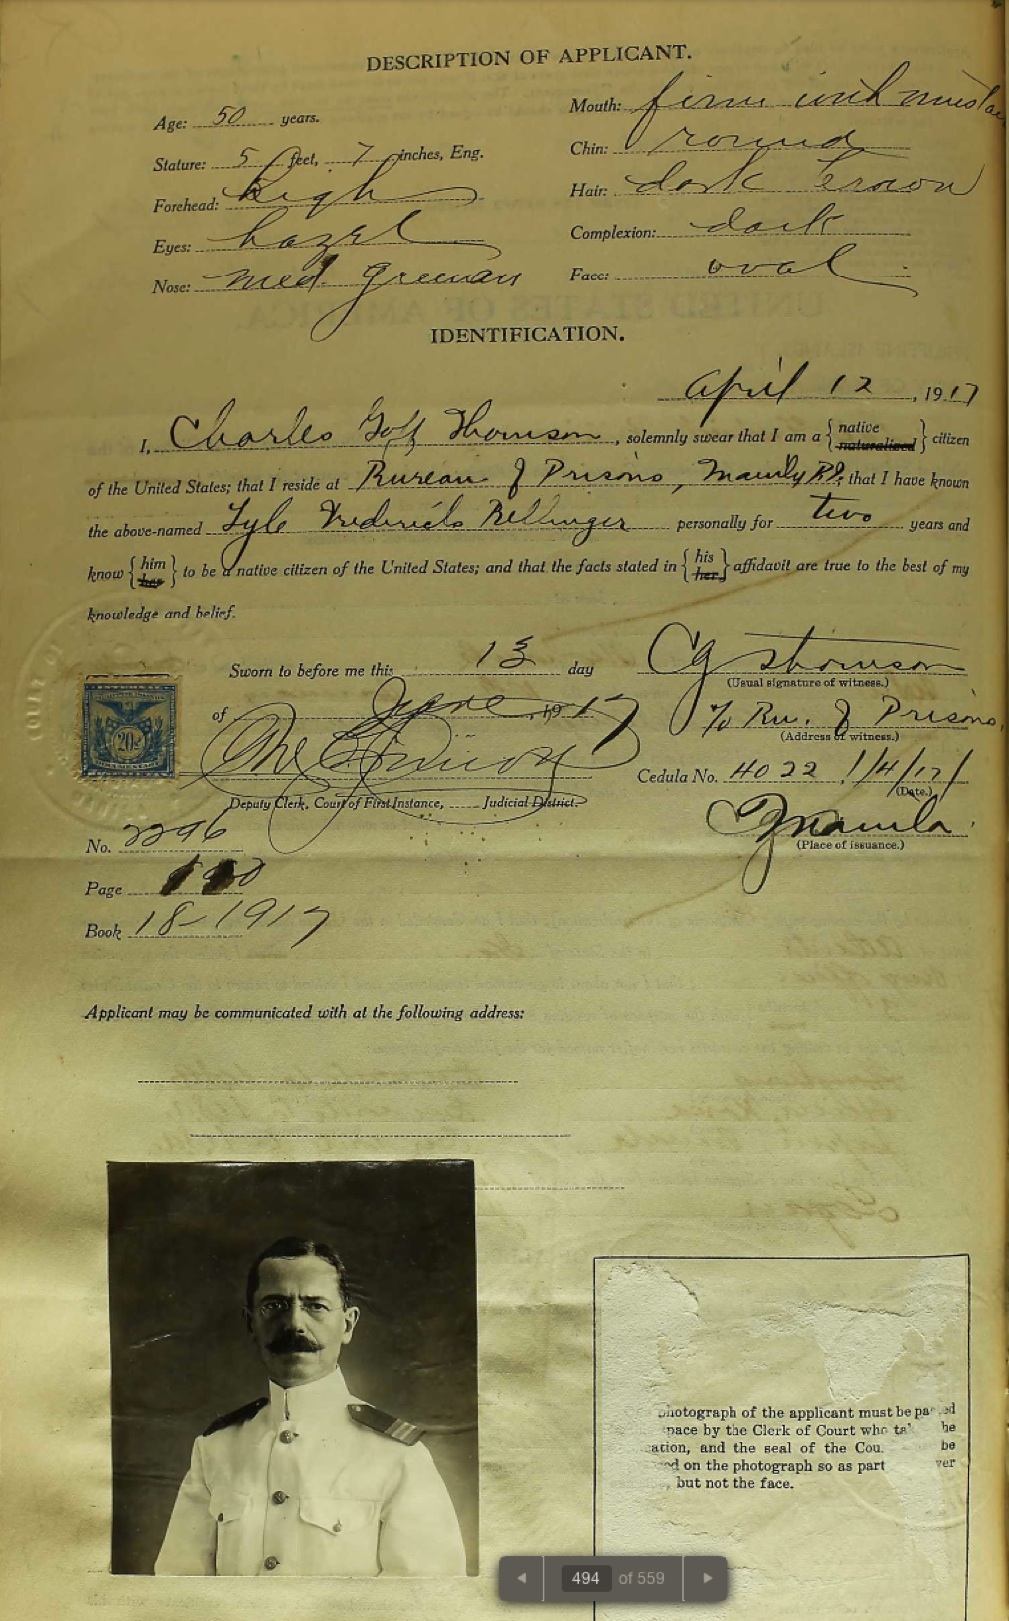 DESCRIPTION OF APPLICANT.
Age: 50 years.
Stature: 5 feet, 7 inches, Eng.
Forehead: high
Eyes: hazel
Nose: med.
Mouth: firm with
Chin: round
Hair: dark brown
Complexion: dark
Face: oval
IDENTIFICATION.
April 12, 1917
I, Charles Goff Thomson, solemnly swear that I am a { native naturalized } citizen
of the United States; that I reside at Bureau of Prisons, Manila P.I. that I have known
the above-named Lyle Frederick Bellinger personally for two years and
know { him her } to be a native citizen of the United States; and that the facts stated in { his her } affidavit are true to the best of my
knowledge and belief.
Sworn to before me this 13 day
of June, 1917
Deputy Clerk, Court of First Instance, Judicial District.
CG Thomson
(Usual signature of witness.)
% Bu. of Prisons,
(Address of witness.)
Cedula No. 4022 1/4/17
(Date.)
Manila
(Place of issuance.)
20c
No. 2296
Page
Book 18-1917
Applicant may be communicated with at the following address:
photograph of the applicant must be
space by the Clerk of Court who
and the seal of the
on the photograph so as part
, but not the face.
494 of 559